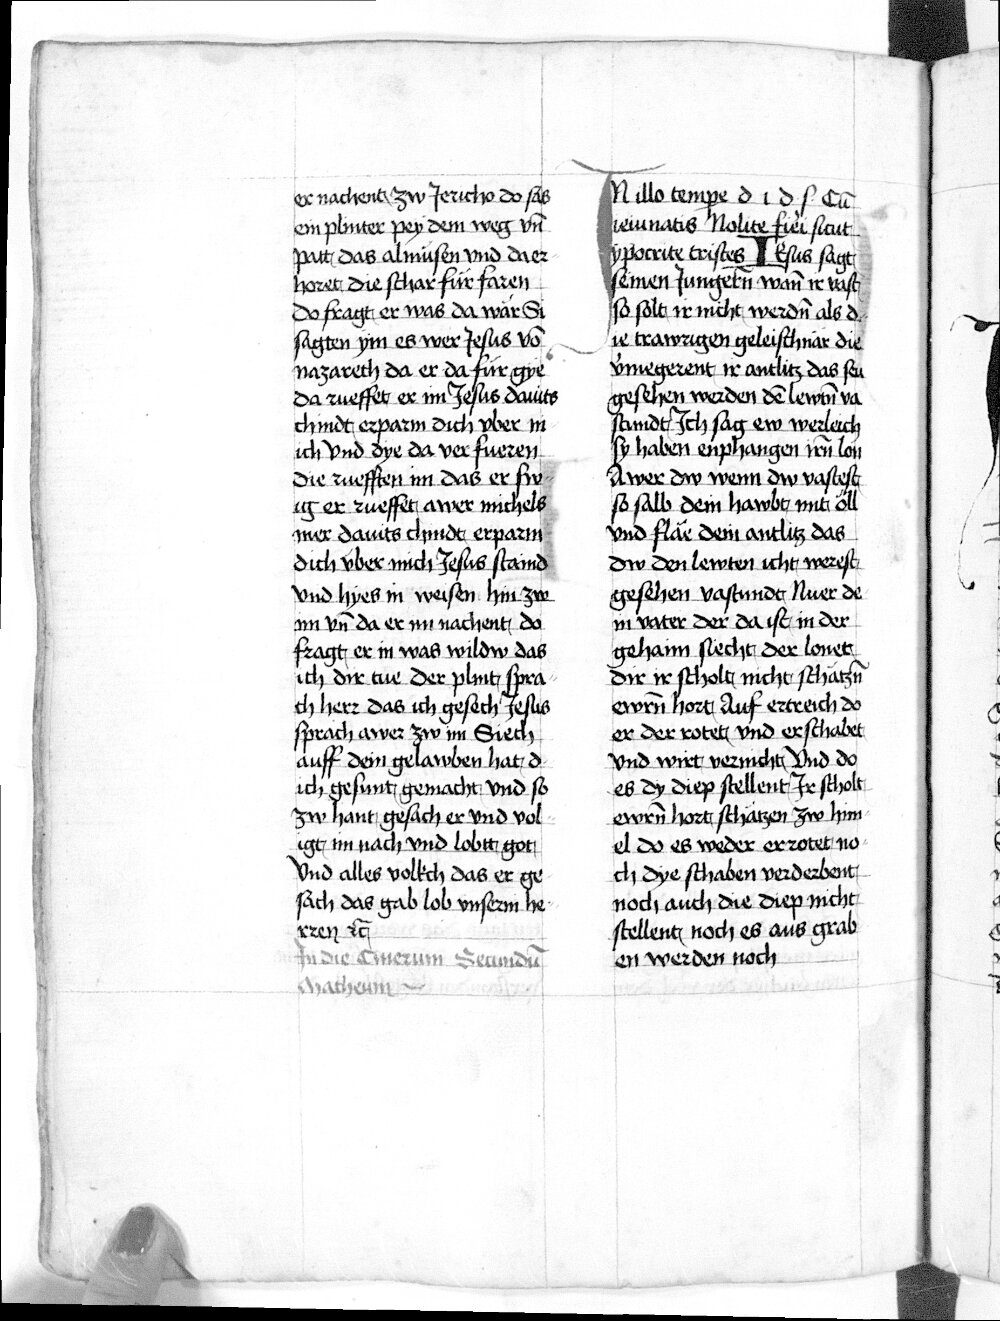 er nachent zw Jericho do sas
ein plinter pey dem weg vn̄
patt das almüsen vnd da er
horet die schar für faren
do fragt er was da wär Si
sagten ym es wer Jesus vō
nazareth da er da für gye
da rueffet er im Jesus dauits
chindt erparm dich vber m
ich vnd dye da ver fueren
die ruefften im das er sw
ig er rueffet awer michels
mer dauits chindt erparm
dich vber mich Jesus staind
vnd hyes in weisen hin zw
im vn̄ da er im nachent do
fragt er in was wildw das
ich dir tue Der plint spra
ch herr das ich gesech Jesus
sprach awer zw im Siech
auff dein gelawben hat d
ich gesunt gemacht vnd so
zw hant gesach er vnd vol
igt im nach vnd lobtt got
Vnd alles volkch das er ge
sach das gab lob vnserm he
rren ꝛc̄
In die Cinerum Secundū
Matheum
IN illo tempe d i d s Cū
ieiunatis Nolite fieri sicut
ypocrite tristes IEsus sagt
seinen Jungern̄ wan̄ ir vast
so solt ir nicht werdn̄ als d
ie trawrigen geleischnär die
vnuegerent ir antlitz das seu
gesehen werden dē lewtn̄ va
stundt Ich sag ew werleich
sy haben enphangen irn̄ lon
Awer dw wenn dw vastest
so salb dein hawbt mit öll
vnd fläe dein antlitz das
dw den lewten icht werest
gesehen vastundt Nuer de
in vater der da ist in der
gehaim siecht der lonet
dir ir scholt nicht schätzn̄
ewrn̄ hort Auf ertreich do
er der rotet vnd erschabet
vnd wirt vernicht Vnd do
es dy diep stellent Ir scholt
ewrn̄ hort schätzen zw him
el do es weder errotet no
ch dye schaben verderbent
noch auch die diep nicht
stellent noch es aus grab
en werden noch